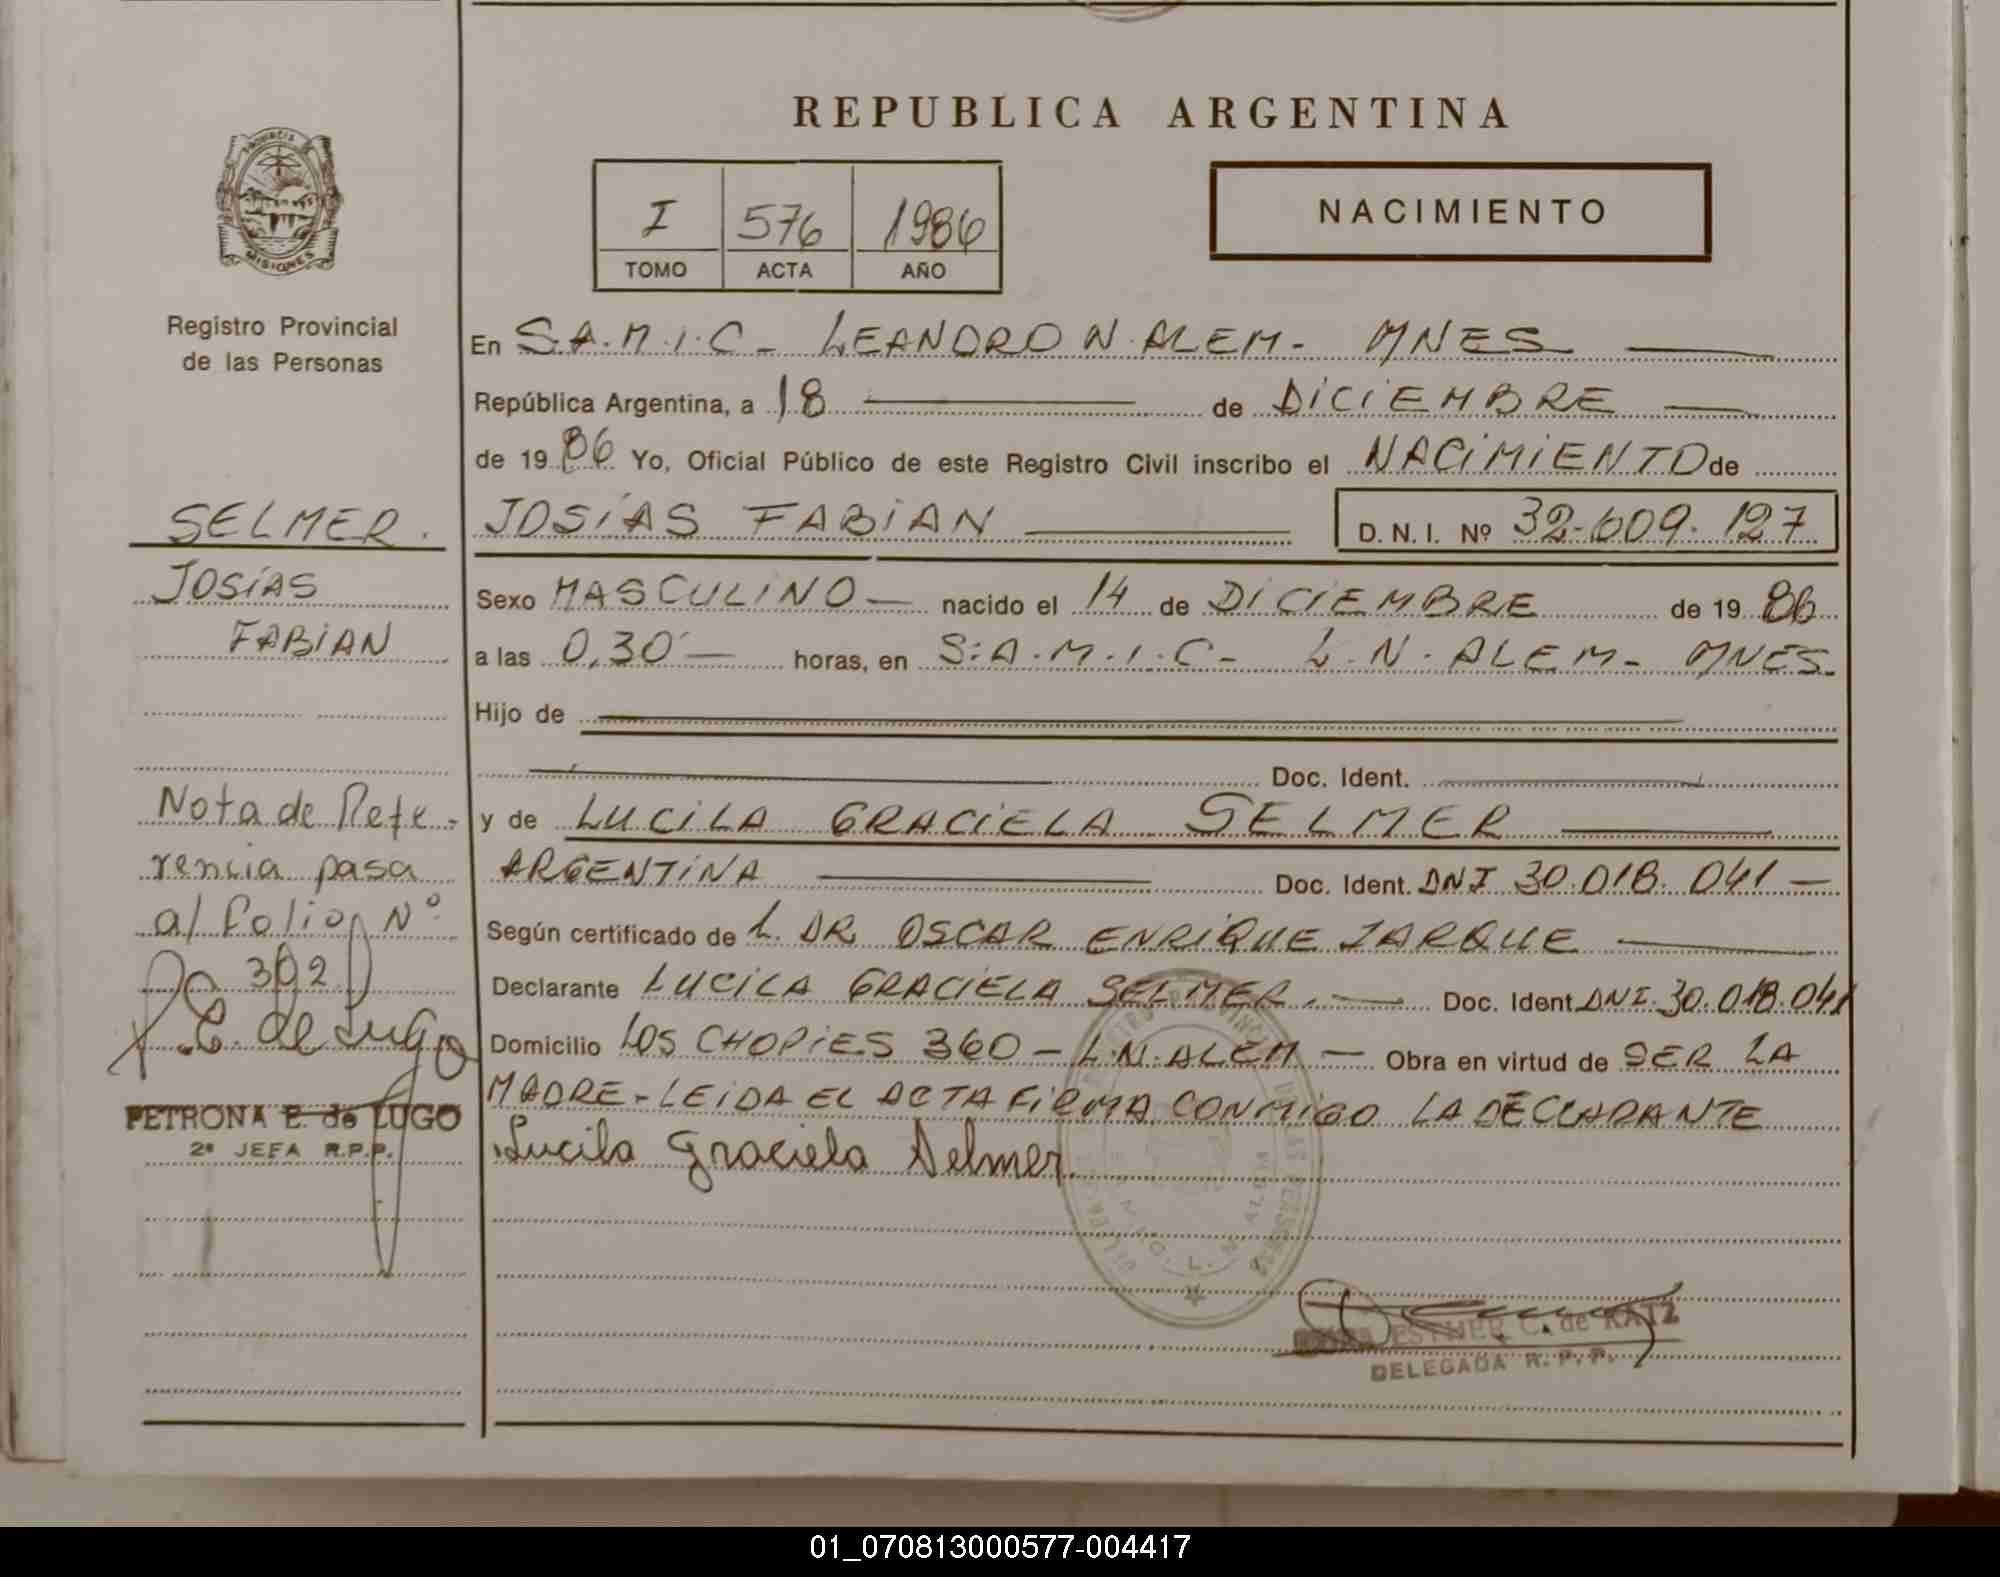 REPUBLICA ARGENTINA
PROVINCIA DE
MISIONES
I 576 1986
TOMO ACTA AÑO
NACIMIENTO
Registro Provincial
de las Personas
En S.A.M.I.C- LEANDRO N. ALEM- MNES
República Argentina, a 18 de DICIEMBRE
de 1986 Yo, Oficial Público de este Registro Civil inscribo el NACIMIENTO de
SELMER.
JOSÍAS FABIAN D.N.I. Nº 32.609.127
JOSÍAS
FABIAN
Sexo MASCULINO nacido el 14 de DICIEMBRE de 1986
a las 0,30 horas, en S.A.M.I.C- L.N. ALEM- MNES.
Hijo de
Doc. Ident.
y de LUCILA GRACIELA SELMER
ARGENTINA Doc. Ident. DNI 30.018.041
Según certificado de L. DR. OSCAR ENRIQUE JARQUE
Declarante LUCILA GRACIELA SELMER. Doc. Ident. DNI. 30.018.041
Domicilio LOS CHOPIES 360 - L.N. ALEM - Obra en virtud de SER LA
MADRE - LEIDA EL ACTA FIRMA CONMIGO LA DECLARANTE
Lucila Graciela Selmer
Nota de Refe-
rencia pasa
al folio Nº
302
P. E. de Lugo
PETRONA E. de LUGO
2ª JEFA R.P.P.
ESTHER C. de KATZ
DELEGADA R.P.P.
01_070813000577-004417